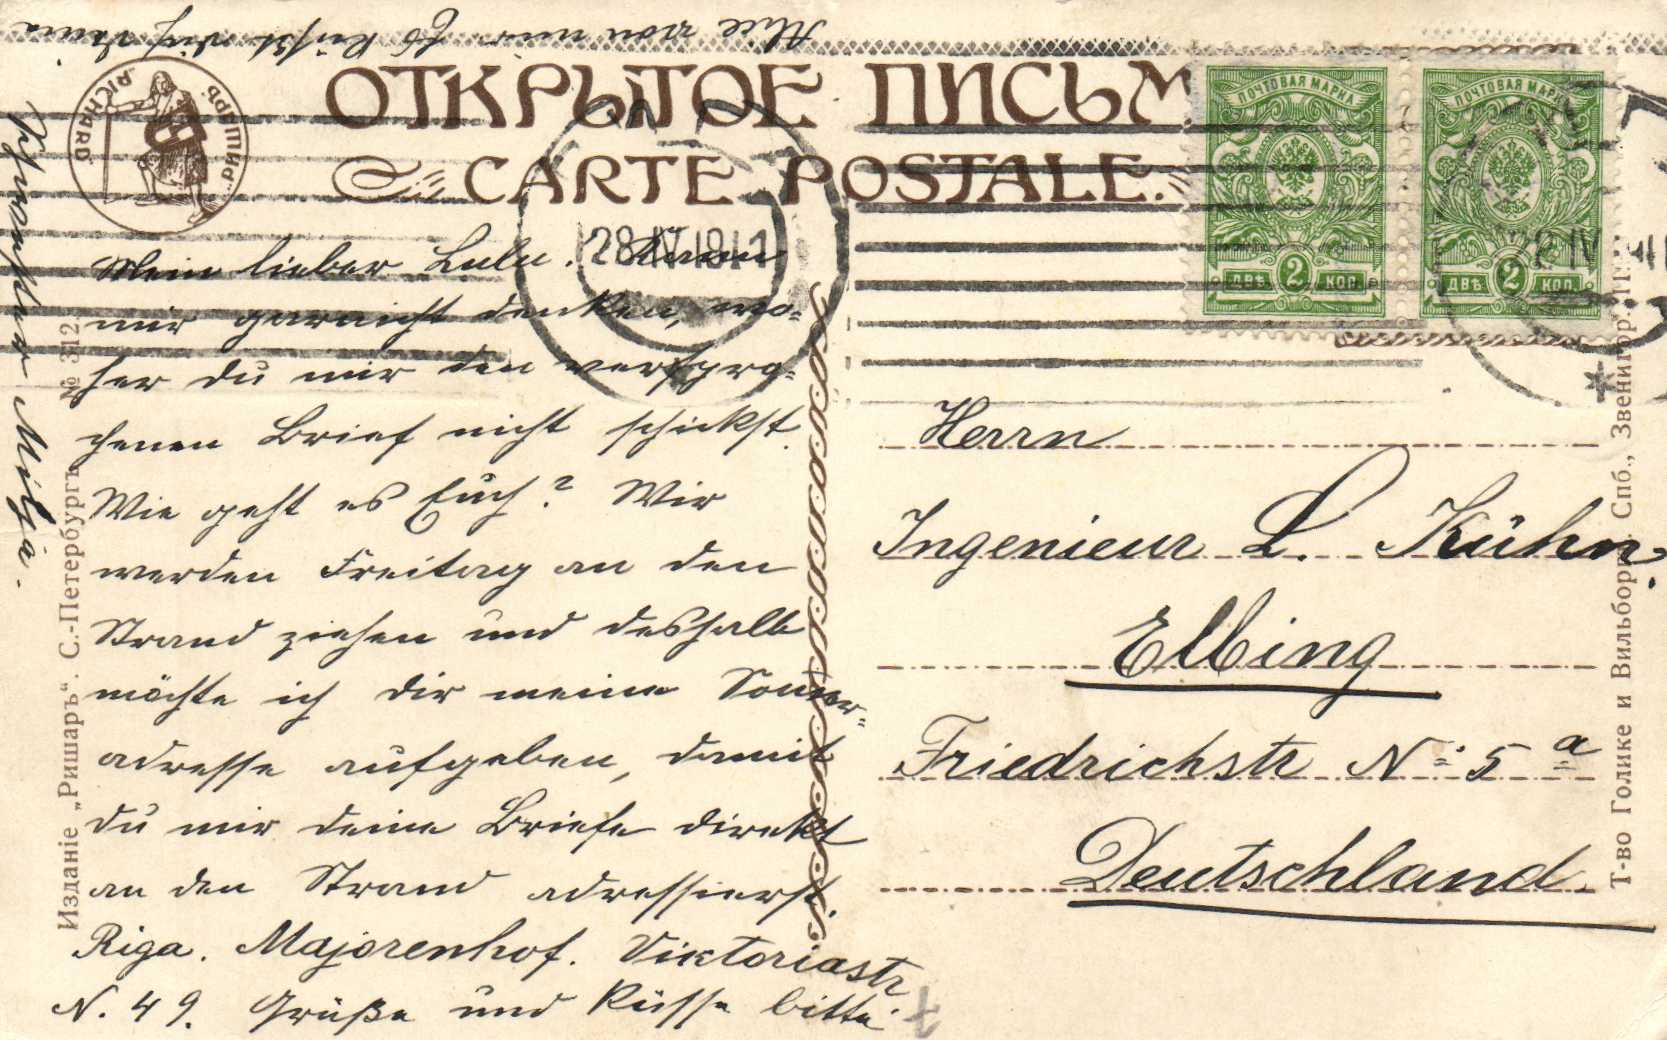 ОТКРЫТОЕ ПИСЬМО
CARTE POSTALE.
"RICHARD"
"РИШАРЪ"
ПОЧТОВАЯ МАРКА
2
ДВѢ КОП.
ПОЧТОВАЯ МАРКА
2
ДВѢ КОП.
28 IV 1911
Mein lieber Lulu. Kann
mir garnicht denken, wo-
her du mir den verspro-
chenen Brief nicht schickst.
Wie geht es Euch? Wir
werden Freitag an den
Strand ziehen und deshalb
möchte ich dir meine Sommer-
adresse aufgeben, damit
du mir deine Briefe direkt
an den Strand adressierst.
Riga. Majorenhof. Viktoriastr
N. 49. Grüße und Küsse bitte
Alle von mir. Es küßt dich deine
Schwester
Herrn
Ingenieur L. Kühn.
Elbing
Friedrichstr № 5 a
Deutschland.
Изданіе „Ришаръ“. С.-Петербургъ. № 312.
Т-во Голике и Вильборг, Спб., Звенигор.